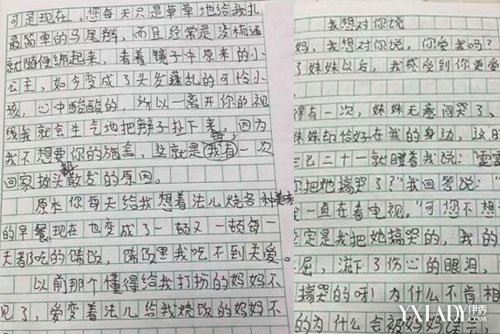 可是现在,您每天只是草草地给我扎
最简单的马尾辫,而且经常是没梳通
就随便绑起来,看着镜子中原来的小
公主,如今变成了头发蓬乱的可怜小
孩,心中酸酸的,所以一离开你的视
线我就会生气地把辫子扯下来,因为
我不想要你的掩盖,这就是我有一次
回家披头散发的原因。
原来你每天给我想着法儿烧各种美味
的早餐现在也变成了一顿又一顿每一
天都吃的稀饭,稀饭里我吃不到关爱。
以前那个懂得给我打扮的妈妈不
见了,爱变着法儿给我烧饭的妈妈不
我想对你说
妈,我想对你说,你爱我吗?
了妹妹以后,我感受到你更爱
得有一次,妹妹无意间哭了、
妹妹却恰好在我的身边,这
二十一就瞪着我说:"
把她搞哭了?"我回答说:"
一直在看电视。"可您不想
定是我把她搞哭的,我的
屈,流下了伤心的眼泪,
搞哭的呀!为什么不肯相
YXLADY伊秀
.COM